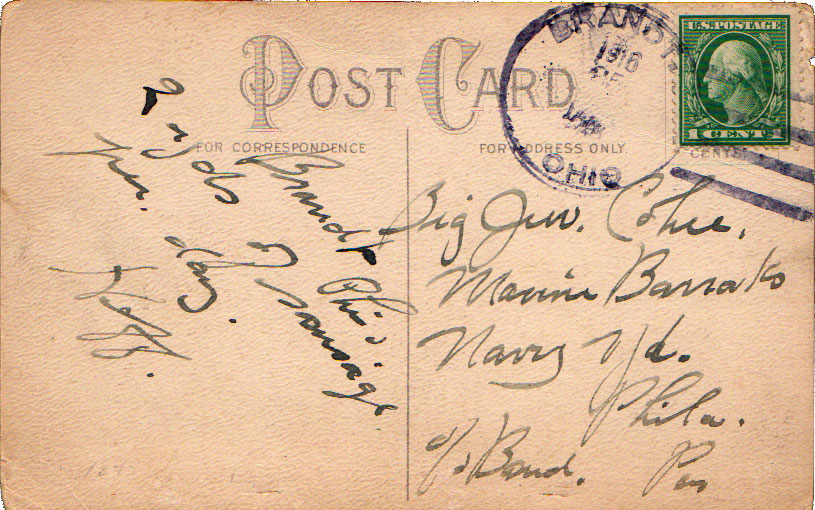 POST CARD
FOR CORRESPONDENCE
FOR ADDRESS ONLY
BRANDT
1916
OHIO
U.S. POSTAGE
1 CENT 1
Brandt Ohio.
2 yds of sausage
per day.
Big Jim. Cohee.
Marine Barracks
Navy Yd.
Phila.
c/o Band. Pa